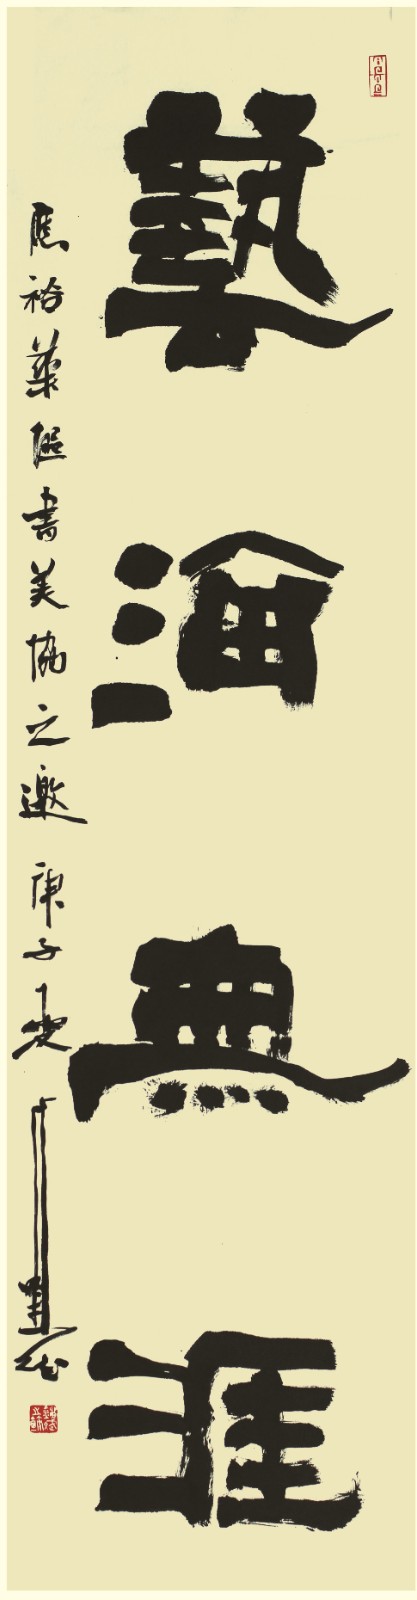 藝海無涯
應裕華區書美協之邀 庚子夏